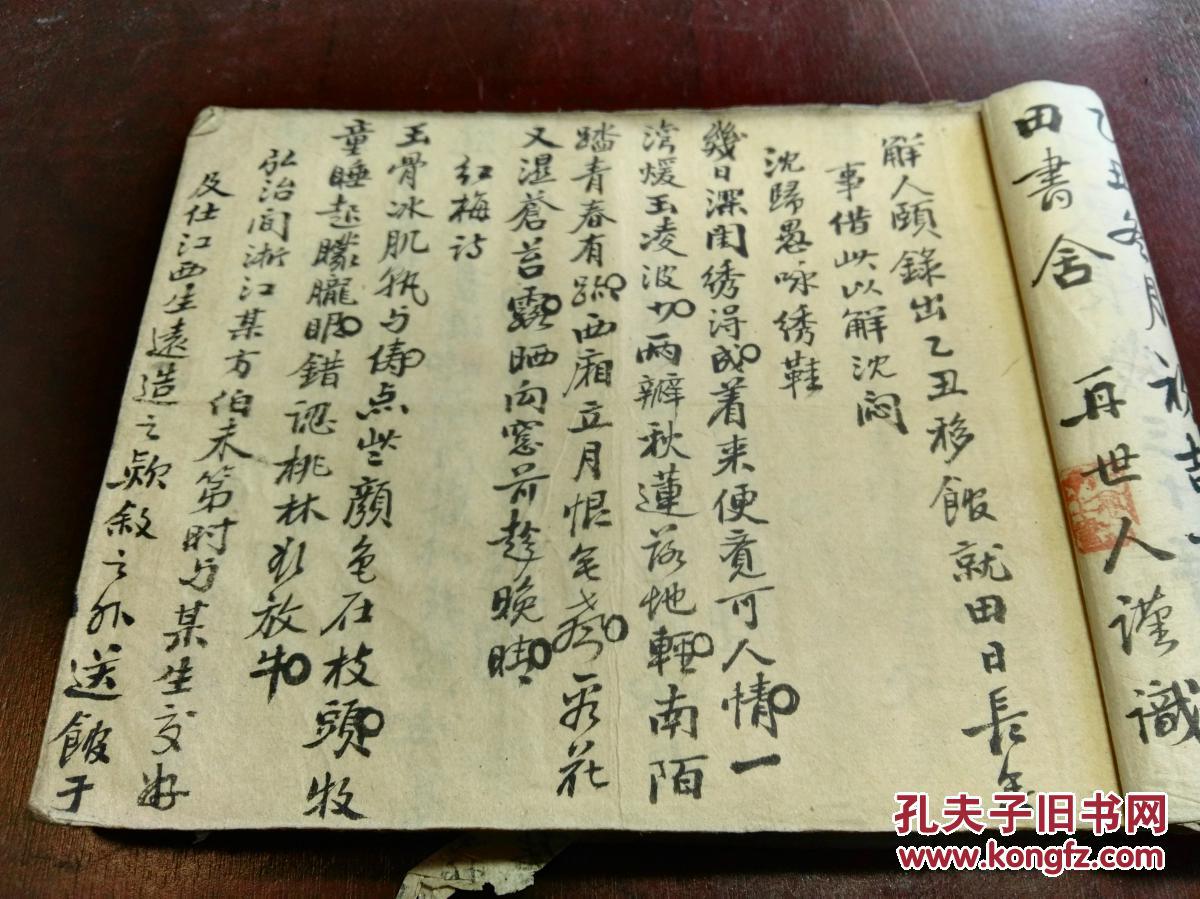 乙丑冬月
田書舍 再世人謹識
解人頤錄出乙丑移館就田日長無
事借此以解沈悶
沈歸愚咏綉鞋
幾日深閨綉得成着来便覺可人情一
湾煖玉凌波切兩瓣秋蓮落地輕南陌
踏青春有跡西廂立月恨無聲看花
又濕蒼苔露晒向窓前趁晚晴
紅梅诗
玉骨冰肌孰与儔点些顔色在枝頭牧
童睡起矇矓眼錯認桃林欲放牛
弘治间浙江某方伯未第时与某生交好
及仕江西生遠造之欵敘之外送館于
孔夫子旧书网
www.kongfz.com